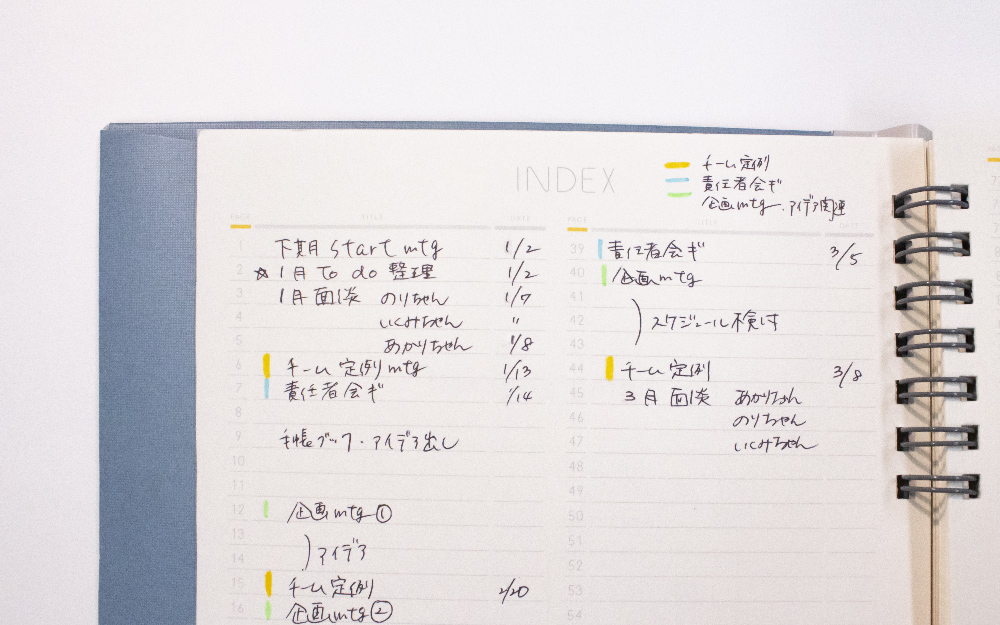 INDEX
チーム定例
責任者会ギ
企画mtg・アイデア関連
PAGE TITLE DATE
1 下期 start mtg 1/2
2 ☆1月 To do 整理 1/2
3 1月 面談 のりちゃん 1/7
4 いくみちゃん 〃
5 あかりちゃん 1/8
6 チーム定例 mtg 1/13
7 責任者会ギ 1/14
8
9 手帳ブック・アイデア出し
10
11
12 企画mtg①
13
14 アイデア
15 チーム定例 2/20
16 企画mtg②
PAGE TITLE DATE
39 責任者会ギ 3/5
40 企画mtg
41
42 スケジュール検討
43
44 チーム定例 3/8
45 3月 面談 あかりちゃん
46 のりちゃん
47 いくみちゃん
48
49
50
51
52
53
54